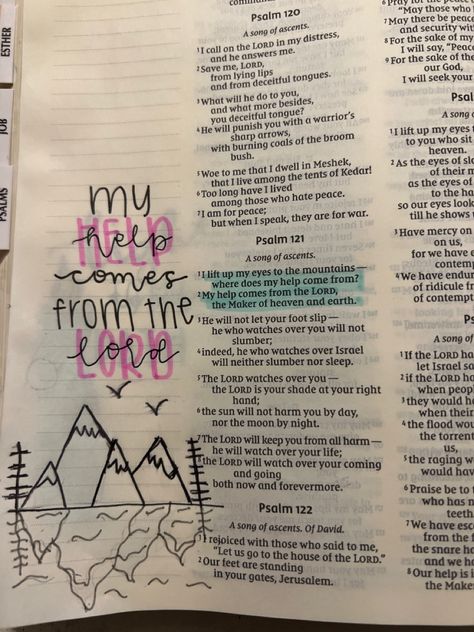 ESTHER
JOB
PSALMS
my
HELP
help
comes
from the
LORD
lord
Psalm 120
A song of ascents.
1 I call on the LORD in my distress,
and he answers me.
2 Save me, LORD,
from lying lips
and from deceitful tongues.
3 What will he do to you,
and what more besides,
you deceitful tongue?
4 He will punish you with a warrior's
sharp arrows,
with burning coals of the broom
bush.
5 Woe to me that I dwell in Meshek,
that I live among the tents of Kedar!
6 Too long have I lived
among those who hate peace.
7 I am for peace;
but when I speak, they are for war.
Psalm 121
A song of ascents.
1 I lift up my eyes to the mountains —
where does my help come from?
2 My help comes from the LORD,
the Maker of heaven and earth.
3 He will not let your foot slip —
he who watches over you will not
slumber;
4 indeed, he who watches over Israel
will neither slumber nor sleep.
5 The LORD watches over you —
the LORD is your shade at your right
hand;
6 the sun will not harm you by day,
nor the moon by night.
7 The LORD will keep you from all harm —
he will watch over your life;
the LORD will watch over your coming
and going
both now and forevermore.
Psalm 122
A song of ascents. Of David.
1 I rejoiced with those who said to me,
"Let us go to the house of the LORD."
2 Our feet are standing
in your gates, Jerusalem.
"May those who
7 May there be peace
and security with
8 For the sake of my
I will say, "Peac
9 For the sake of the
our God,
I will seek your
Psal
A song
1 I lift up my eyes to
to you who sit
heaven.
2 As the eyes of sl
of their m
as the eyes of
to the ha
so our eyes look
till he shows
3 Have mercy on
on us,
for we have e
contemp
4 We have endu
of ridicule fr
of contemp
Ps
A song
1 If the LORD ha
let Israel sa
2 if the LORD ha
when peop
3 they would h
when their
4 the flood wou
the torren
us,
5 the raging w
would hav
6 Praise be to
who has n
teeth
7 We have esc
from the
the snare ha
and we h
8 Our help is i
the Make